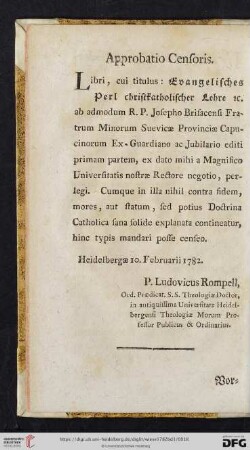 Approbatio Censoris.
Libri, cui titulus: Evangelisches
Perl christkatholischer Lehre ꝛc.
ab admodum R. P. Josepho Brisacensi Fra-
trum Minorum Suevicæ Provinciæ Capu-
cinorum Ex-Guardiano ac Jubilario editi
primam partem, ex dato mihi a Magnifico
Universitatis nostræ Rectore negotio, per-
legi. Cumque in illa nihil contra fidem,
mores, aut statum, sed potius Doctrina
Catholica sana solide explanata contineatur,
hinc typis mandari posse censeo.
Heidelbergæ 10. Februarii 1782.
P. Ludovicus Rompell,
Ord. Prædicat. S. S. Theologiæ Doctor,
in antiquissima Universitate Heidel-
bergensi Theologiæ Morum Pro-
fessor Publicus & Ordinarius.
Vor-
UNIVERSITÄTS-
BIBLIOTHEK
HEIDELBERG
DFG